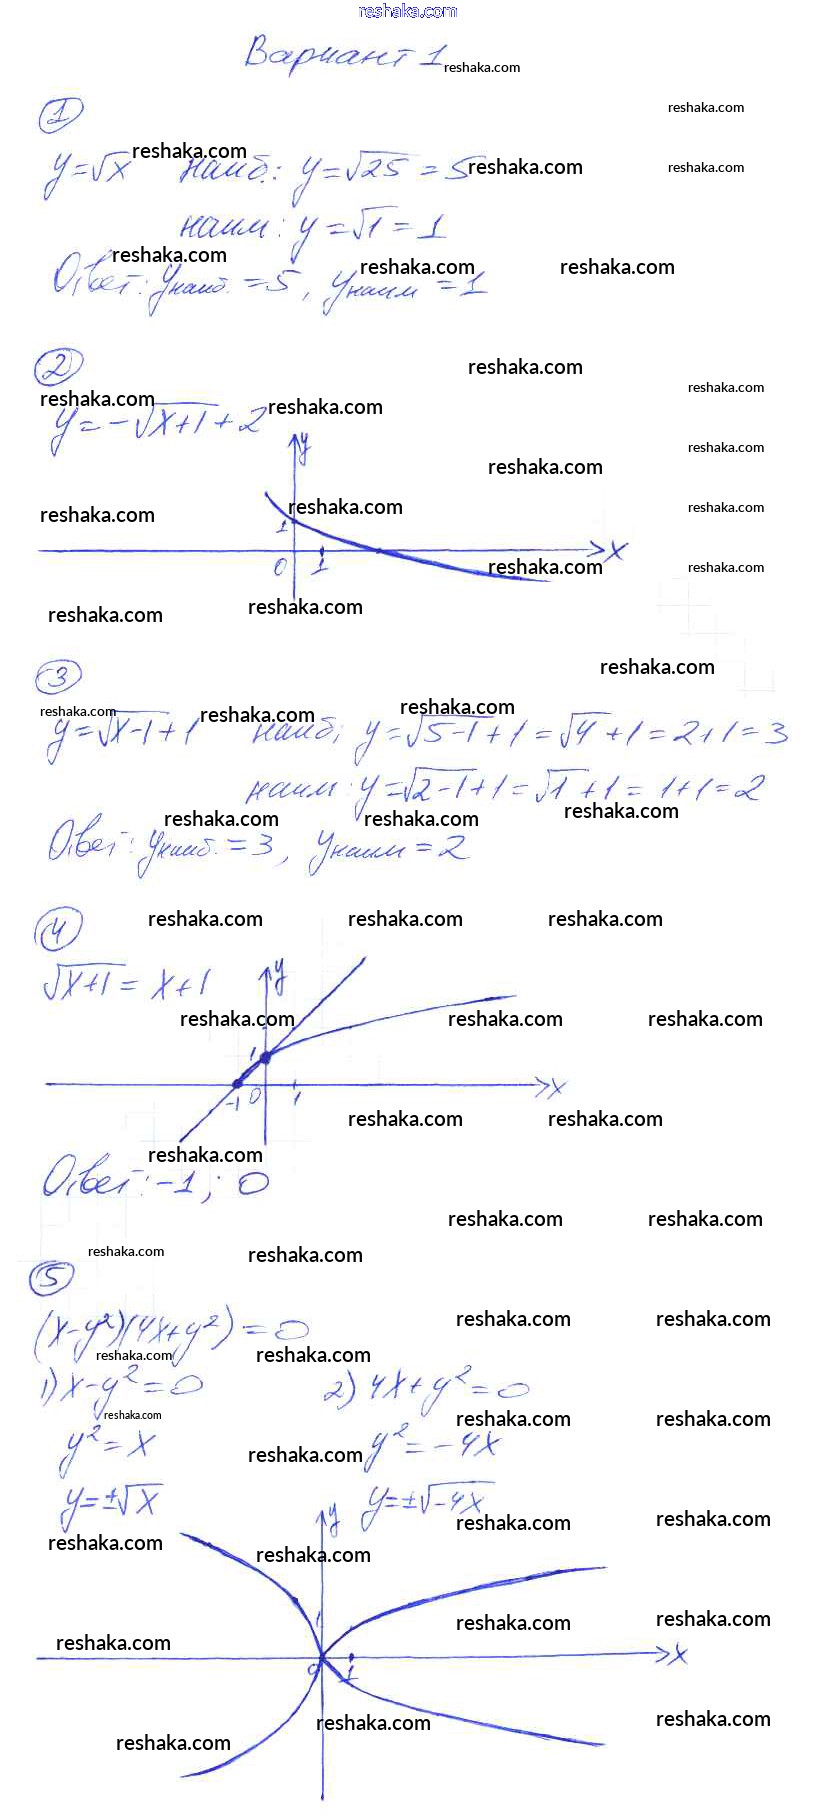 reshaka.com
Вариант 1 reshaka.com
1 reshaka.com
y=√x reshaka.com наиб.: y=√25=5 reshaka.com reshaka.com
наим: y=√1=1
Ответ: yнаиб.=5, yнаим=1 reshaka.com reshaka.com reshaka.com
2 reshaka.com
reshaka.com reshaka.com
y=-√x+1+2 reshaka.com
y
reshaka.com reshaka.com
reshaka.com reshaka.com reshaka.com
1
x
0 1 reshaka.com reshaka.com
reshaka.com reshaka.com
3 reshaka.com
reshaka.com reshaka.com reshaka.com
y=√x-1+1 наиб: y=√5-1+1=√4+1=2+1=3
наим: y=√2-1+1=√1+1=1+1=2
reshaka.com reshaka.com reshaka.com
Ответ: yнаиб.=3, yнаим=2
4 reshaka.com reshaka.com reshaka.com
√x+1=x+1 y
reshaka.com reshaka.com reshaka.com
1
-1 0 1 x
reshaka.com reshaka.com
reshaka.com
Ответ: -1; 0
reshaka.com reshaka.com
reshaka.com reshaka.com
5
(x-y²)(4x+y²)=0 reshaka.com reshaka.com
reshaka.com reshaka.com
1) x-y²=0 2) 4x+y²=0
reshaka.com reshaka.com reshaka.com
y²=x reshaka.com y²=-4x
y=±√x y y=±√-4x
reshaka.com reshaka.com
reshaka.com reshaka.com
1 reshaka.com reshaka.com
reshaka.com x
0 1
reshaka.com reshaka.com
reshaka.com